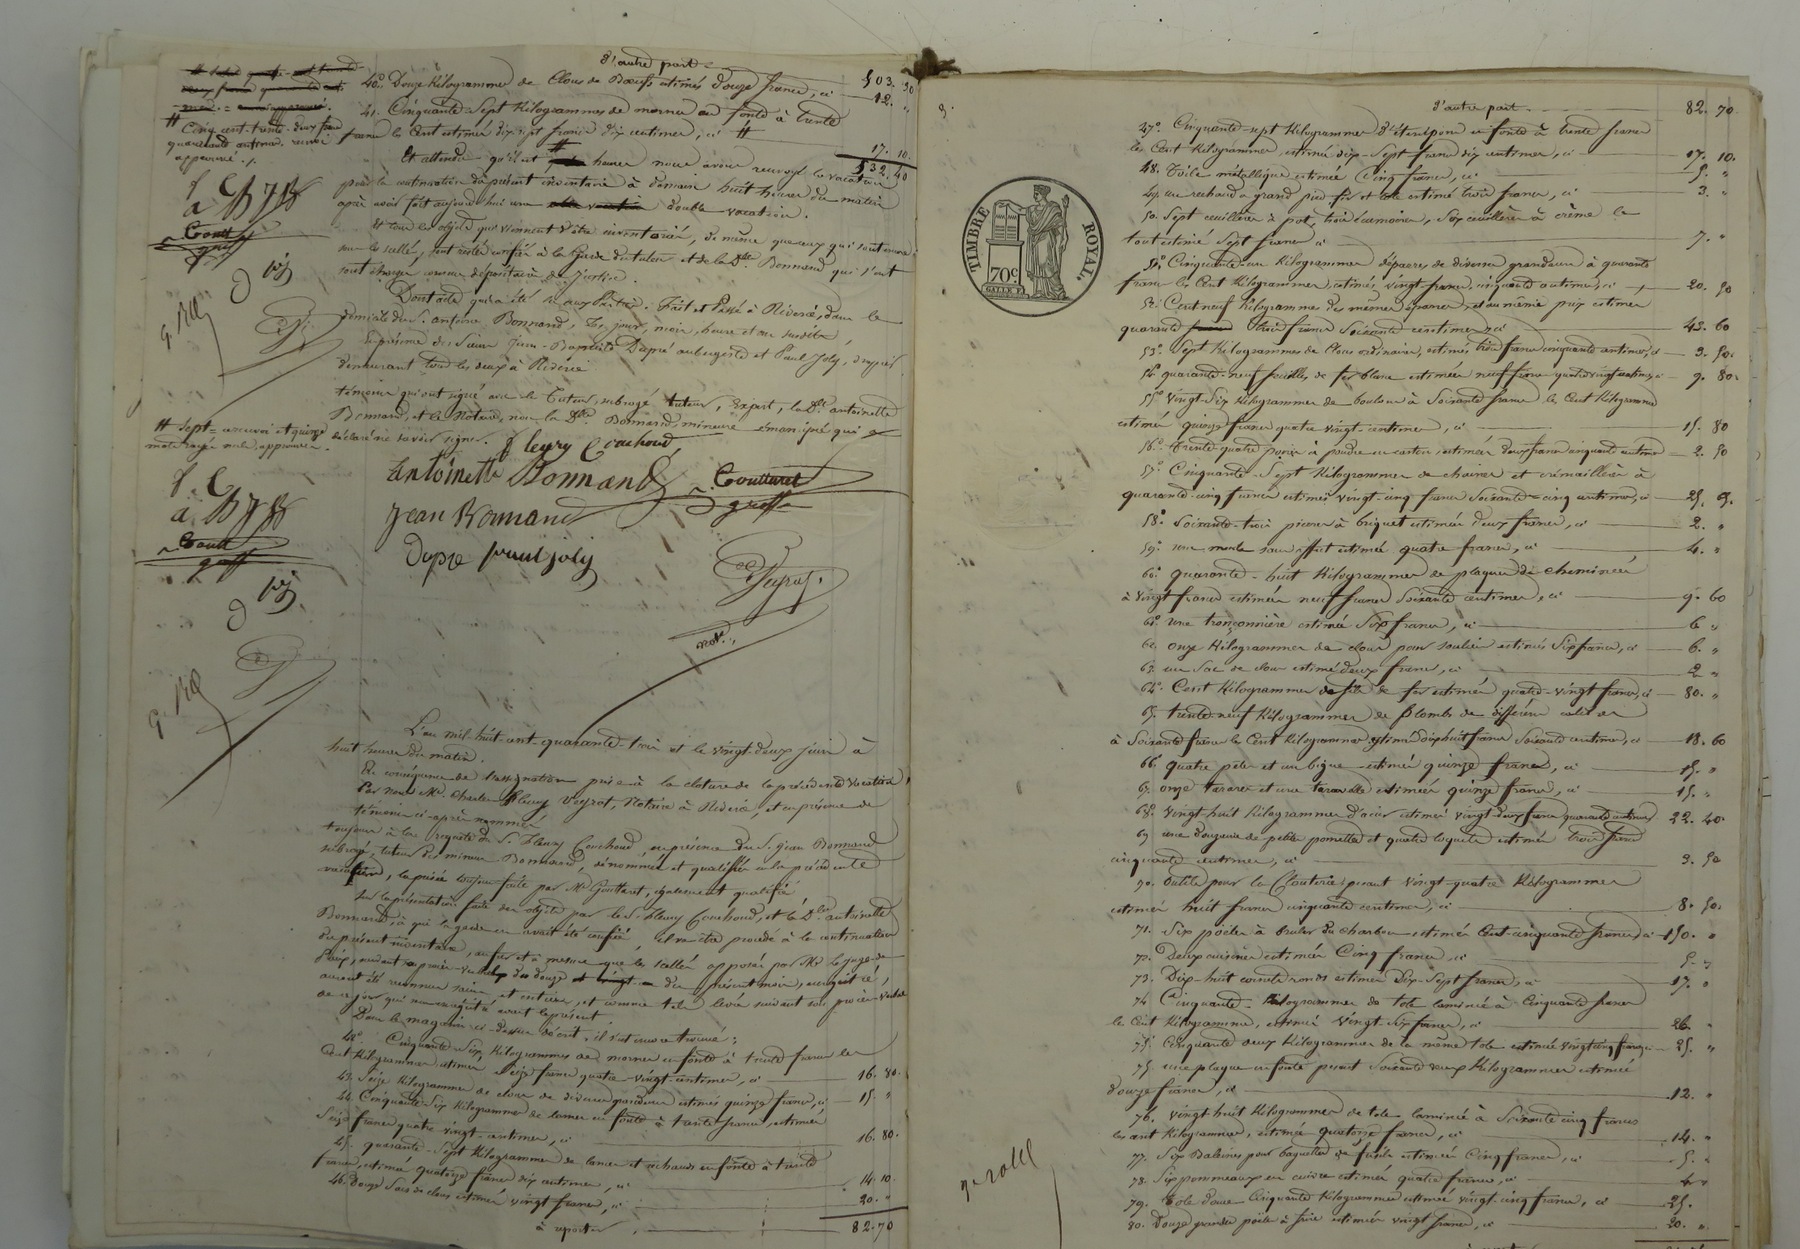 d'autre part
503. 50
40°. Douze Kilogrammes de Clous de Bœufs estimés douze francs, ci — 12. "
41. Cinquante Sept Kilogrammes de mornes en fonte à trente
francs le Cent estimés dix sept francs dix centimes, ci # 17. 10
532. 40
# Cinq cent trente deux francs
quarante centimes. renvoi
approuvé ./.
Et attendu qu'il est # heures nous avons renvoyé la vacation
pour la continuation du présent inventaire à demain huit heures du matin
après avoir fait aujourd'hui une double vacation.
Et tous les objets qui viennent d'être inventoriés, de même que ceux qui sont
sous les scellés, sont restés confiés à la Garde du tuteur et de la Dlle Bonnand qui s'en
sont chargés comme dépositaires de Justice.
Dont acte qui a été lu aux Parties. Fait et Passé à Rivérie, dans le
domicile du S. antoine Bonnand, Les jour, mois, heure et an susdits,
En présence des Sieurs Jean-Baptiste Dupré aubergiste et Paul Joly,
demeurant tous les deux à Rivérie
témoins qui ont signé avec le Tuteur, subrogé tuteur, Expert, la Dlle antoinette
Bonnand, et le Notaire, non la Dlle Bonnand, mineure émancipée qui a
déclaré ne savoir signer.
# Sept = renvoi et quinze
mots rayés nuls approuvés.
fleury Couchoud
Antoinette Bonnand
Gouttaret
greff
Jean Bonnand
Dupré paul joly
Peyrot
not.
L'an mil huit cent quarante-trois et le vingt deux juin à
huit heures du matin.
En conséquence de l'assignation prise à la cloture de la précédente vacation,
Par nous Me. Charles Fleury Peyrot, Notaire à Rivérie, et en présence de
témoins ci-après nommés
toujours à la requête du S. fleury Couchoud, en présence du S. jean Bonnand
subrogé tuteur des mineurs Bonnand, dénommés et qualifiés en la précédente
vacation, la prisée toujours faite par Me Gouttaret, également qualifié
Sur la présentation faite des objets par le S. fleury Couchoud, et la Dlle antoinette
Bonnand, à qui la garde en avait été confiée, il va être procédé à la continuation
du présent inventaire, au fur et à mesure que les scellés apposés par Mr le juge de
Paix, suivant son procès-verbal du douze du présent mois, enregistré,
auront été reconnus sains et entiers, et comme tels levés suivant son procès-verbal
de ce jour qui sera enregistré avant le présent.
Dans le magasin ci-dessus décrit, il s'est encore trouvé :
42°. Cinquante Six Kilogrammes de mornes en fonte à trente francs les
Cent Kilogrammes estimés Seize francs quatre-vingt centimes, ci — 16. 80.
43. Seize Kilogrammes de clous de diverses grandeurs estimés quinze francs, ci — 15. "
44. Cinquante-Six Kilogrammes de lames en fonte à trente francs, estimés
Seize francs quatre vingt centimes, ci — 16. 80.
45. quarante-Sept Kilogrammes de lances et réchauds en fonte à trente
francs, estimés quatorze francs dix centimes, ci — 14. 10.
46. Douze Sacs de clous estimés vingt francs, ci — 20. "
à reporter — 82. 70
3.
d'autre part — 82. 70.
TIMBRE ROYAL.
70c.
47°. Cinquante-sept Kilogrammes d' en fonte à trente francs
les Cent Kilogrammes, estimés dix-Sept francs dix centimes, ci — 17. 10.
48. Toile métallique estimée Cinq francs, ci — 5. "
49. un rechaud à grand pied fer et tole estimé trois francs, ci — 3. "
50. Sept cuillères à pot, trois écumoires, Six cuillères à crème le
tout estimé Sept francs, ci — 7. "
51. Cinquante-un Kilogrammes d'épares de diverses grandeurs à quarante
francs les Cent Kilogrammes, estimés vingt francs, cinquante centimes, ci — 20. 50
52. Cent neuf Kilogrammes des mêmes épares, et au même prix estimés
quarante trois francs Soixante centimes, ci — 43. 60
53°. Sept Kilogrammes de Clous ordinaires, estimés trois francs cinquante centimes, ci — 3. 50.
54. quarante-neuf feuilles de fer blanc estimées neuf francs quatre vingt centimes, ci — 9. 80.
55° Vingt-Six Kilogrammes de boulons à Soixante francs le Cent Kilogrammes
estimés quinze francs quatre vingt-centimes, ci — 15. 80
56°. Trente quatre poires à poudre en carton, estimées deux francs cinquante centimes — 2. 50
57. Cinquante-Sept Kilogrammes de chaines et crémaillères à
quarante-cinq francs estimés vingt-cinq francs Soixante-cinq centimes, ci — 25. 65.
58. Soixante-trois pierres à briquet estimées deux francs, ci — 2. "
59. une meule sans effet estimée quatre francs, ci — 4. "
60. quarante-huit Kilogrammes de plaques de cheminées
à vingt francs estimés neuf francs Soixante centimes, ci — 9. 60
61. une tronçonnière estimée Six francs, ci — 6. "
62. onze Kilogrammes de clous pour soulier estimés Six francs, ci — 6. "
63. un Sac de clous estimé deux francs, ci — 2. "
64°. Cent Kilogrammes de fils de fer estimés quatre-vingt francs, ci — 80. "
65. trente-neuf Kilogrammes de Plombs de différens calibres
à Soixante francs le Cent Kilogrammes, estimés dix huit francs Soixante centimes, ci — 18. 60
66. quatre pèles et un bigue estimés quinze francs, ci — 15. "
67. onze tarares et une taravelle estimés quinze francs, ci — 15. "
68. vingt-huit Kilogrammes d'acier estimés vingt-deux francs quarante centimes — 22. 40.
69 une douzaine de petites pomettes et quatre loquets estimés trois francs
cinquante centimes, ci — 3. 50
70. Outils pour la Clouterie pesant vingt-quatre Kilogrammes
estimés huit francs cinquante centimes, ci — 8. 50.
71. Six poëles à bruler du charbon estimés Cent-cinquante francs, ci — 150. "
72. Deux cuisines estimées Cinq francs, ci — 5. "
73. Dix-huit ronds estimés Dix-Sept francs, ci — 17. "
74 Cinquante- Kilogrammes de tole laminée à Cinquante francs
le Cent Kilogrammes, estimés Vingt-Six francs, ci — 26. "
75. Cinquante deux Kilogrammes de la même tole estimés vingt cinq francs, ci — 25. "
75. une plaque en fonte pesant Soixante deux Kilogrammes estimée
douze francs, ci — 12. "
76. vingt huit Kilogrammes de tole laminée à Soixante cinq francs
les cent Kilogrammes, estimés quatorze francs, ci — 14. "
77. Six Baleines pour baguettes de fusils estimées Cinq francs, ci — 5. "
78. Six pommeaux en cuivre estimés quatre francs, ci — 4. "
79. Tole douce Cinquante Kilogrammes estimés vingt-cinq francs, ci — 25.
80. Douze grandes poëles à frire estimées vingt francs, ci — 20. "